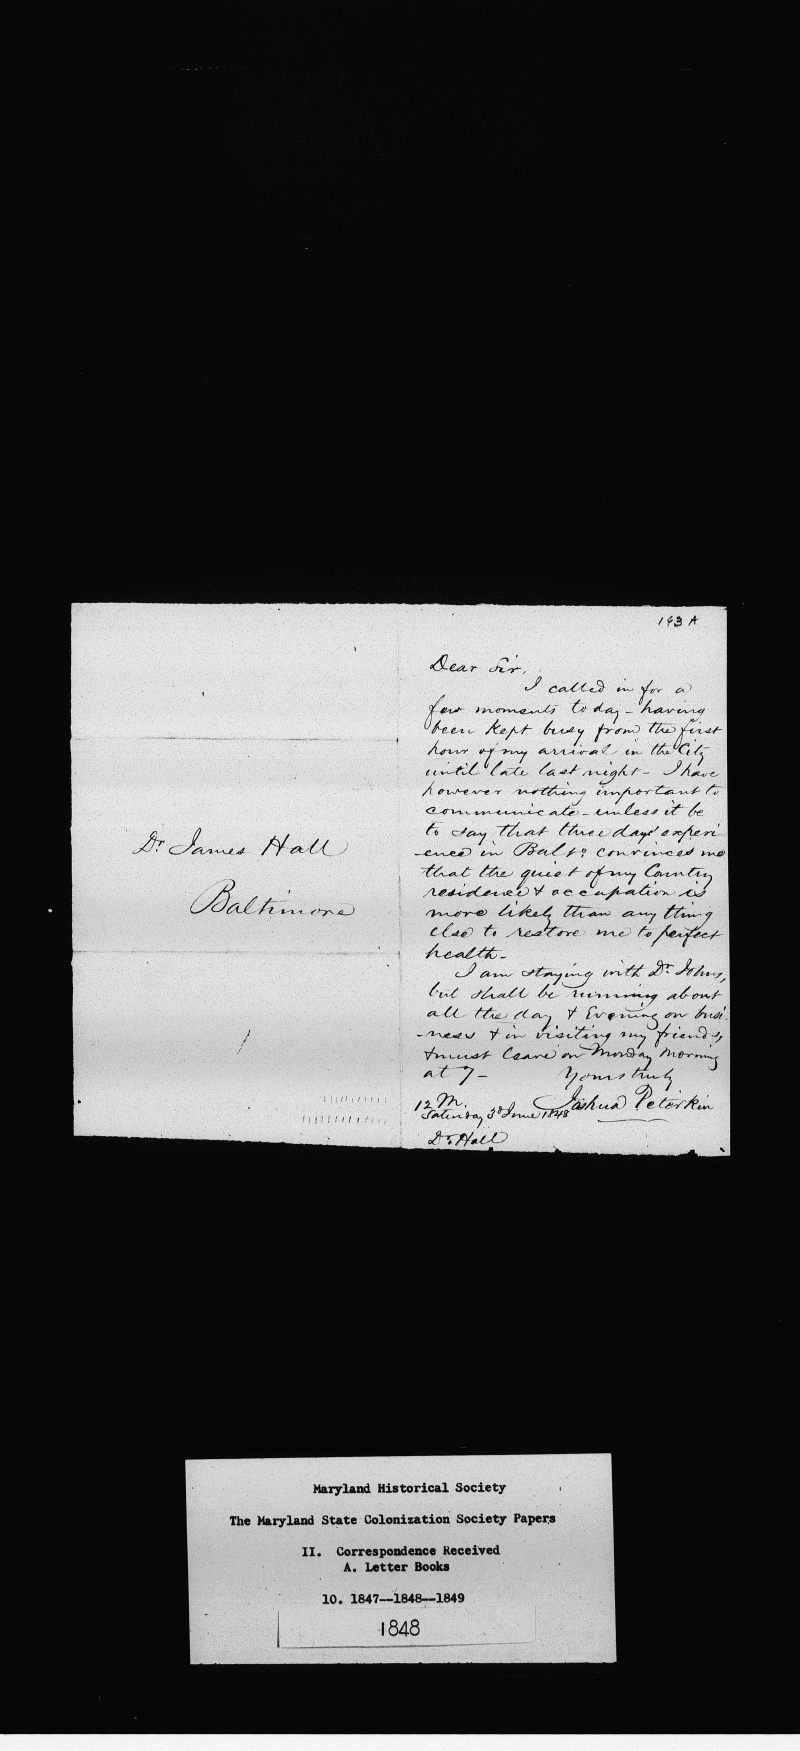 193 A
Dear Sir,
I called in for a
few moments to day - having
been kept busy from the first
hour of my arrival in the City
until late last night - I have
however nothing important to
communicate - unless it be
to say that three days' experi
-ence in Balto. convinces me
that the quiet of my Country
residence & occupation is
more likely than any thing
else to restore me to perfect
health -
I am staying with Dr. Johns,
but shall be running about
all the day & Evening on busi-
-ness & in visiting my friends,
& must leave on Monday morning
at 7 -
Yours truly
Joshua Peterkin
12 M.
Saturday 3d June 1848
Dr. Hall
Dr James Hall
Baltimore
Maryland Historical Society
The Maryland State Colonization Society Papers
II. Correspondence Received
A. Letter Books
10. 1847--1848--1849
1848